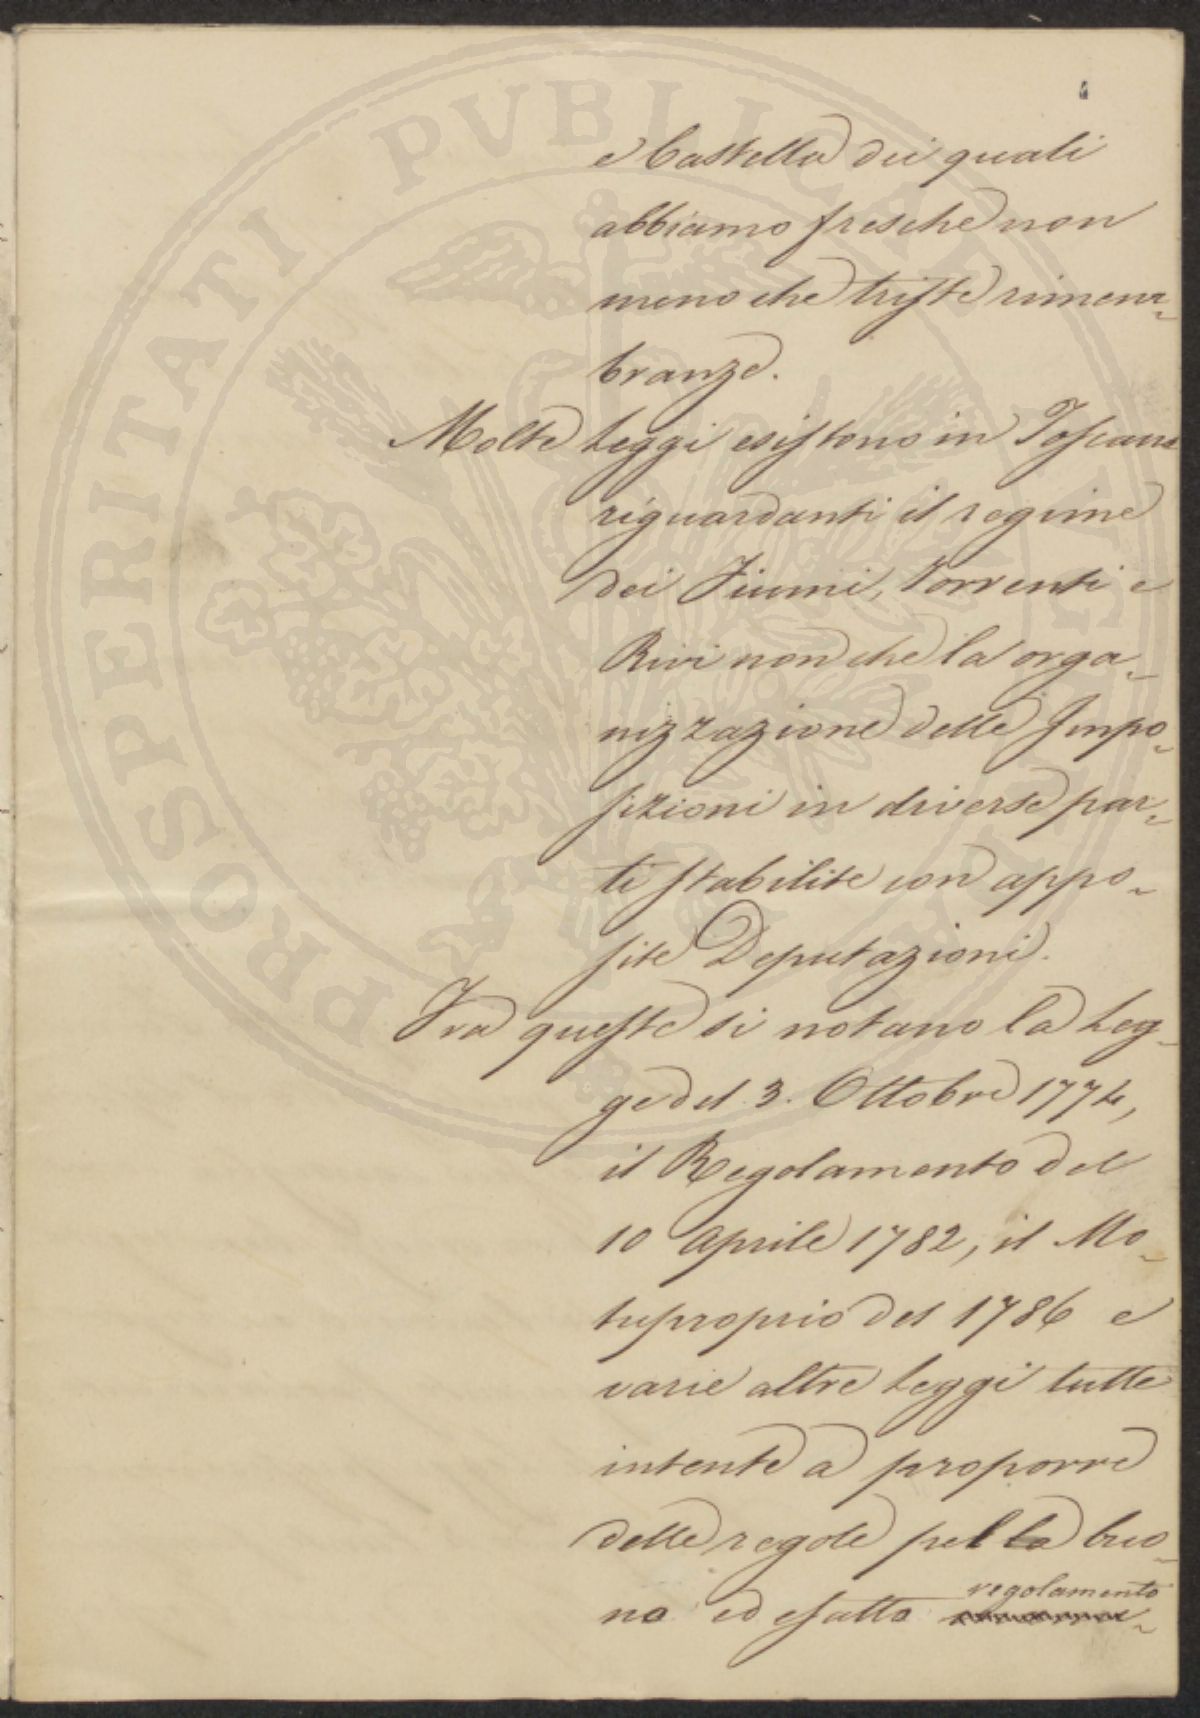 e Castella dei quali
abbiamo fresche non
meno che triste rimem-
branze.
Molte Leggi esistono in Toscana
riguardanti il regime
dei Fiumi, Torrenti e
Rivi non che la orga-
nizzazione delle Impo-
sizioni in diverse par-
ti stabilite con appo-
site Deputazioni.
Tra queste si notano la Leg-
ge del 3. Ottobre 1774,
il Regolamento del
10 Aprile 1782, il Mo-
tuproprio del 1786 e
varie altre Leggi tutte
intente a proporre
delle regole pel la buo-
no ed esatto regolamento
PROSPERITATI PVBLICAE AVGENDAE